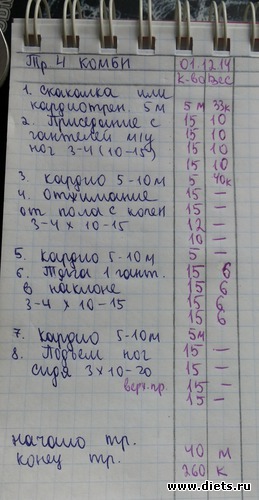 Тр 4 КОМБИ 01.12.14
к-во вес
1. скакалка или
кардиотрен. 5м 5м 33к
2. Приседание с 15 10
гантелей м/у 15 10
ног 3-4 (10-15) 15 10
15 10
3. кардио 5-10м 5 40к
4. отжимание 15 —
от пола с колен 15 —
3-4 х 10-15 12 —
10 —
5. кардио 5-10м 5 —
6. Тяга 1 гант. 15 6
в наклоне 15 6
3-4 х 10-15 15 6
15 6
7. кардио 5-10м 5м
8. Подъем ног 15 —
сидя 3х10-20 15 —
верх.пр. 15 —
15 —
начало тр. 40 м
конец тр. 260 к
www.diets.ru